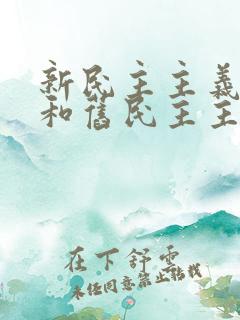 新民主主義
和舊民主主
在下舒雲
未经同意禁止转载